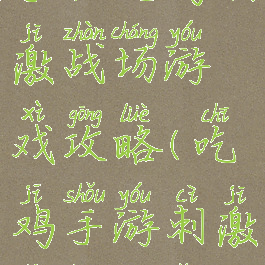 jī zhàn chǎng yóu
激战场游
xì gōng lüè chī
戏攻略(吃
jī shǒu yóu cì jī
鸡手游刺激